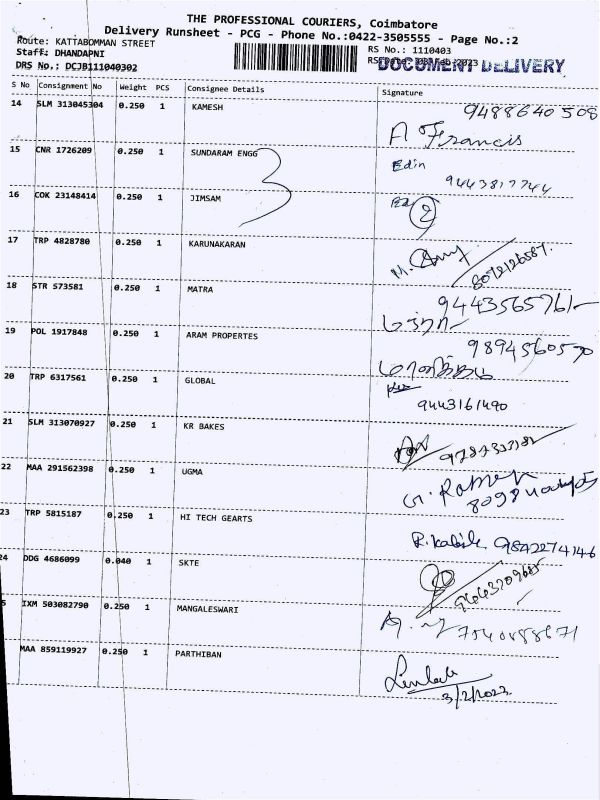 THE PROFESSIONAL COURIERS, Coimbatore
Delivery Runsheet - PCG - Phone No.:0422-3505555 - Page No.:2
Route: KATTABOMMAN STREET
Staff: DHANDAPNI
DRS No.: DCJB111040302
RS No.: 1110403
DOCUMENT DELIVERY
S No Consignment No Weight PCS Consignee Details Signature
14 SLM 313045304 0.250 1 KAMESH 9488640508
A Francis
15 CNR 1726209 0.250 1 SUNDARAM ENGG Edin
9443817744
16 COK 23148414 0.250 1 JIMSAM
17 TRP 4828780 0.250 1 KARUNAKARAN
18 STR 573581 0.250 1 MATRA 9443565761
19 POL 1917848 0.250 1 ARAM PROPERTES 9894560570
20 TRP 6317561 0.250 1 GLOBAL
9443161490
21 SLM 313070927 0.250 1 KR BAKES
22 MAA 291562398 0.250 1 UGMA
23 TRP 5815187 0.250 1 HI TECH GEARTS 9842274146
24 DDG 4686099 0.040 1 SKTE
5 IXM 503082790 0.250 1 MANGALESWARI
MAA 859119927 0.250 1 PARTHIBAN
3/2/2023